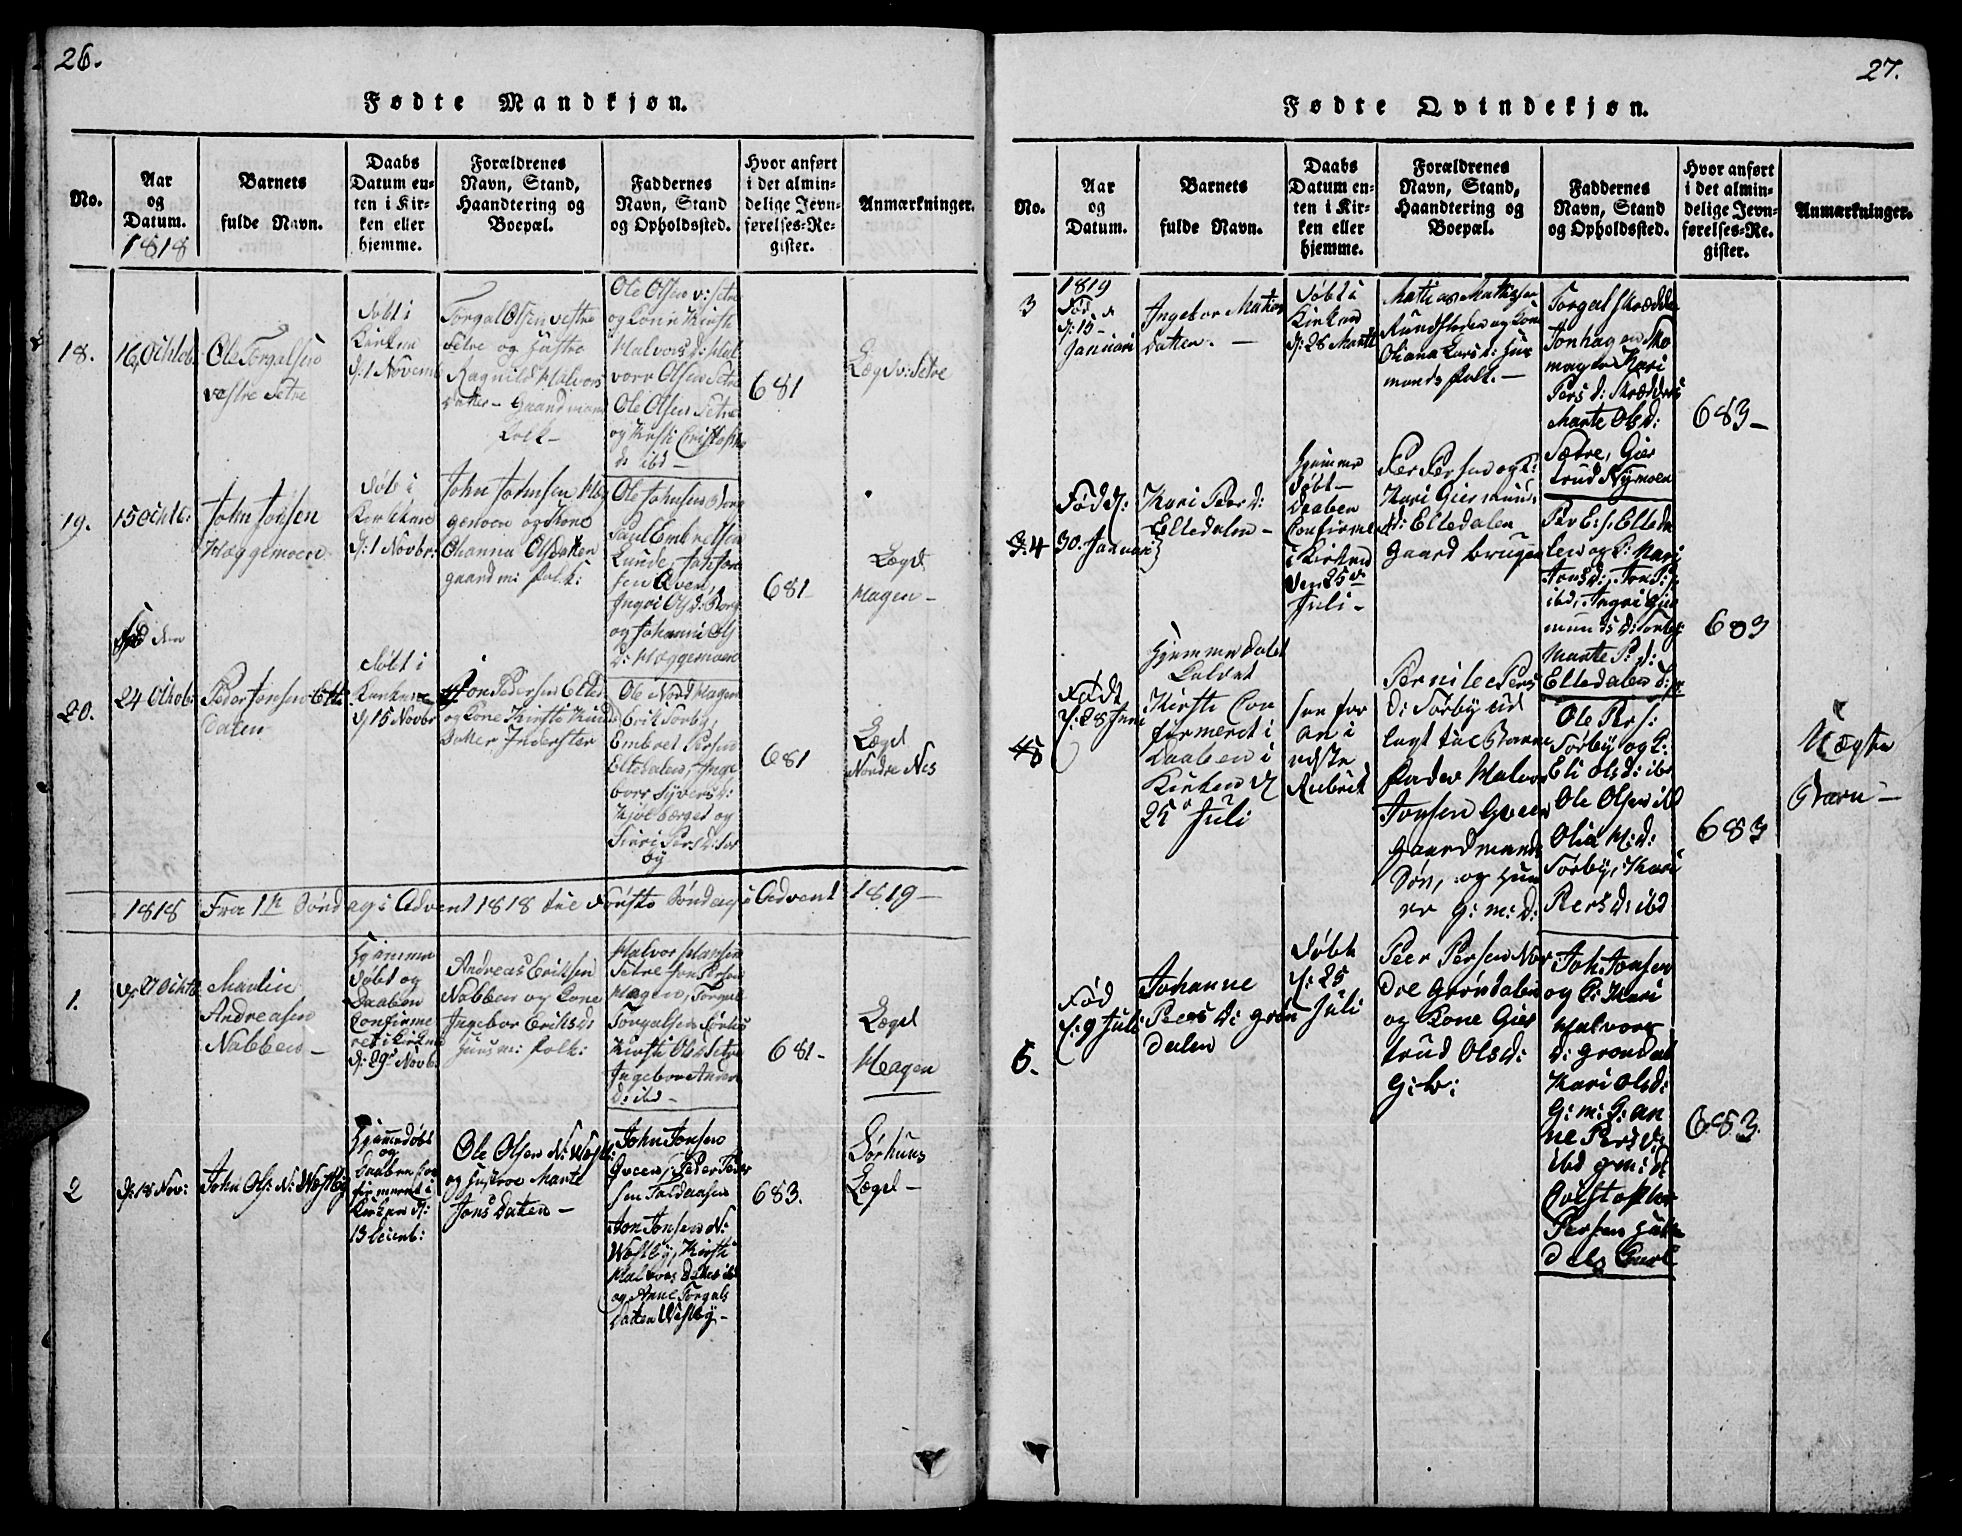 26.
Fødte Mandkjøn.
No.
Aar
og
Datum.
1818
Barnets
fulde Navn.
Daabs
Datum en-
ten i Kir-
ken eller
hjemme.
Forældrenes
Navn, Stand,
Haandtering og
Boepæl.
Faddernes
Navn, Stand
og Opholdssted.
Hvor anført
i det almin-
delige Jevn-
førelses-Re-
gister.
Anmærkninger.
18.
16 Octob
Ole Torgalsen
vestre Setre
døbt i
Kirken
d: 1 Novemb
Torgal Olsen vestre
Setre og Hustro
Ragnild Halvors
datter - Gaardmans
Folk -
Ole Olsen v: Setre
og Kirsti
Halvors d: Hal
vorr Olsen Setre
Ole Olsen Setre
og Kirsti
d: ibd -
681
Lægd v: Setre
19.
15 Octb:
John Jonsen
Hæggemoen
døb i
Kirkene
d: 1 Novbr:
John Johnsen Hæg
gemoen og Kone
Ohanna Olsdatter
gaardm: folk:
Ole Johnsen Berg
Paul Embretsen
Lunde,
sen Qven,
Ingri Ols d: Berg
og Johanne Ols
d: Hæggemoen
681
Lægd
Hagen -
20.
Fød den
24 Octob:
Peder Jonsen Elte
dalen
døbt i
Kirken
d: 15 Novbr
Jon Pedersen Elted
og Kone Kirsti Knud
datter Inderster
Ole Nord Hagen
Erik Sorby,
Embret Persen
Eltedalen, Inge
borr Syvers d:
Kjølberget og
Siuri Pers d: Sør
by
681
Lægd
Nordre Nes
1818 Fra 1te Søndag i Advent 1818 til Første Søndag i Advent 1819 -
1.
d: 27 Octb
Martin
Andreasen
Nabben -
Hjemme
døbt og
Daaben
Confirme
ret i Kirken
d: 29 Novb:
Andreas Eriksen
Nabben og Kone
Ingebor Eriks d:
Huusm: folk:
Halvor Hansen
Setre Jon Persen
Hagen, Torgal
Torgalsen
Kirsti Ols d: Setre
Ingebor Anders
d: ibd -
681 -
Lægd
Hagen
2
d: 18 Nov:
John Ols: N: Westby
Hjemmedøbt
og
Daaben Con
firmeret i
Kirken d:
13
Ole Olsen N: Westb:
og Hustroe Marte
Jons Datter -
John Jonsen
Qveen, Peder Peder
sen
Jon Jonsen N:
Westby, Kirsti
Halvors Datter ibd
og Anne Torgals
Datter Westby -
683.
Sørhuus
Lægd -
27.
Fødte Qvindekjøn.
No.
Aar
og
Datum.
Barnets
fulde Navn.
Daabs
Datum en-
ten i Kir-
ken eller
hjemme.
Forældrenes
Navn, Stand,
Haandtering og
Boepæl.
Faddernes
Navn, Stand
og Opholdssted.
Hvor anført
i det almin-
delige Jevn-
førelses-Re-
gister.
Anmærkninger.
3
1819
Fød
d: 15
Januari
Ingebor Matias
datter. -
Døbt i
Kirken
d: 28 Marts
Matias Mathisen
og Kone
Oliana Lars d: Huus
mands folk. -
Torgal Skrædder
Tonhagen Sko
mager Kari
Pers d: Skrædder
Marte Ols d:
Sætre, Gier
trud Nymoen
683 -
4
Fød d:
30. Januari
Kari Peers d:
Eltedalen -
Hjemme
døbt -
Daaben
Confirmert
i Kirken
den 25de
Juli -
Per Persen og K:
Kari Giermuns
d: Eltedalen
Gaard bruger
Per E:s: Elteda
len og K: Mari
Jons d: Jon P:s
ibd, Ingri Gier
muns d:
Marte P: d:
Eltedalen
683
5
Født
d: 28 Juni
Hjemmedøbt
kaldet
Kirsti Con
firmeret i
Daaben i
Kirken d:
25 Juli
See for
an i
Rubrik
Pernile Pers
d: Sørby ud
lagt til Barne
fader Halvor
Jonsen Qveen
Gaardmands
Søn, og Hun
er G: m: d:
Ole Pers:
Sørby og K:
Eli Ols d: ibd
Ole Olsen ibd
Olia H: d:
Sørby, Kari
Pers d: ibd
683
Uægte
Barn -
6.
Fød
d: 9 Juli
Johanne
Peers d: Grøn
dalen
Døbt
d: 25
Juli
Peer Persen Nor
dre Grøndalen
og Kone Gier
trud Ols d:
G: b:
Joh: Jonsen
og K: Kari
Halvors
d: Grøndal
Kari Ols d:
G: m: d: An
ne Pers d:
ibd g: m: d:
Qristopher
Persen
dals
683.